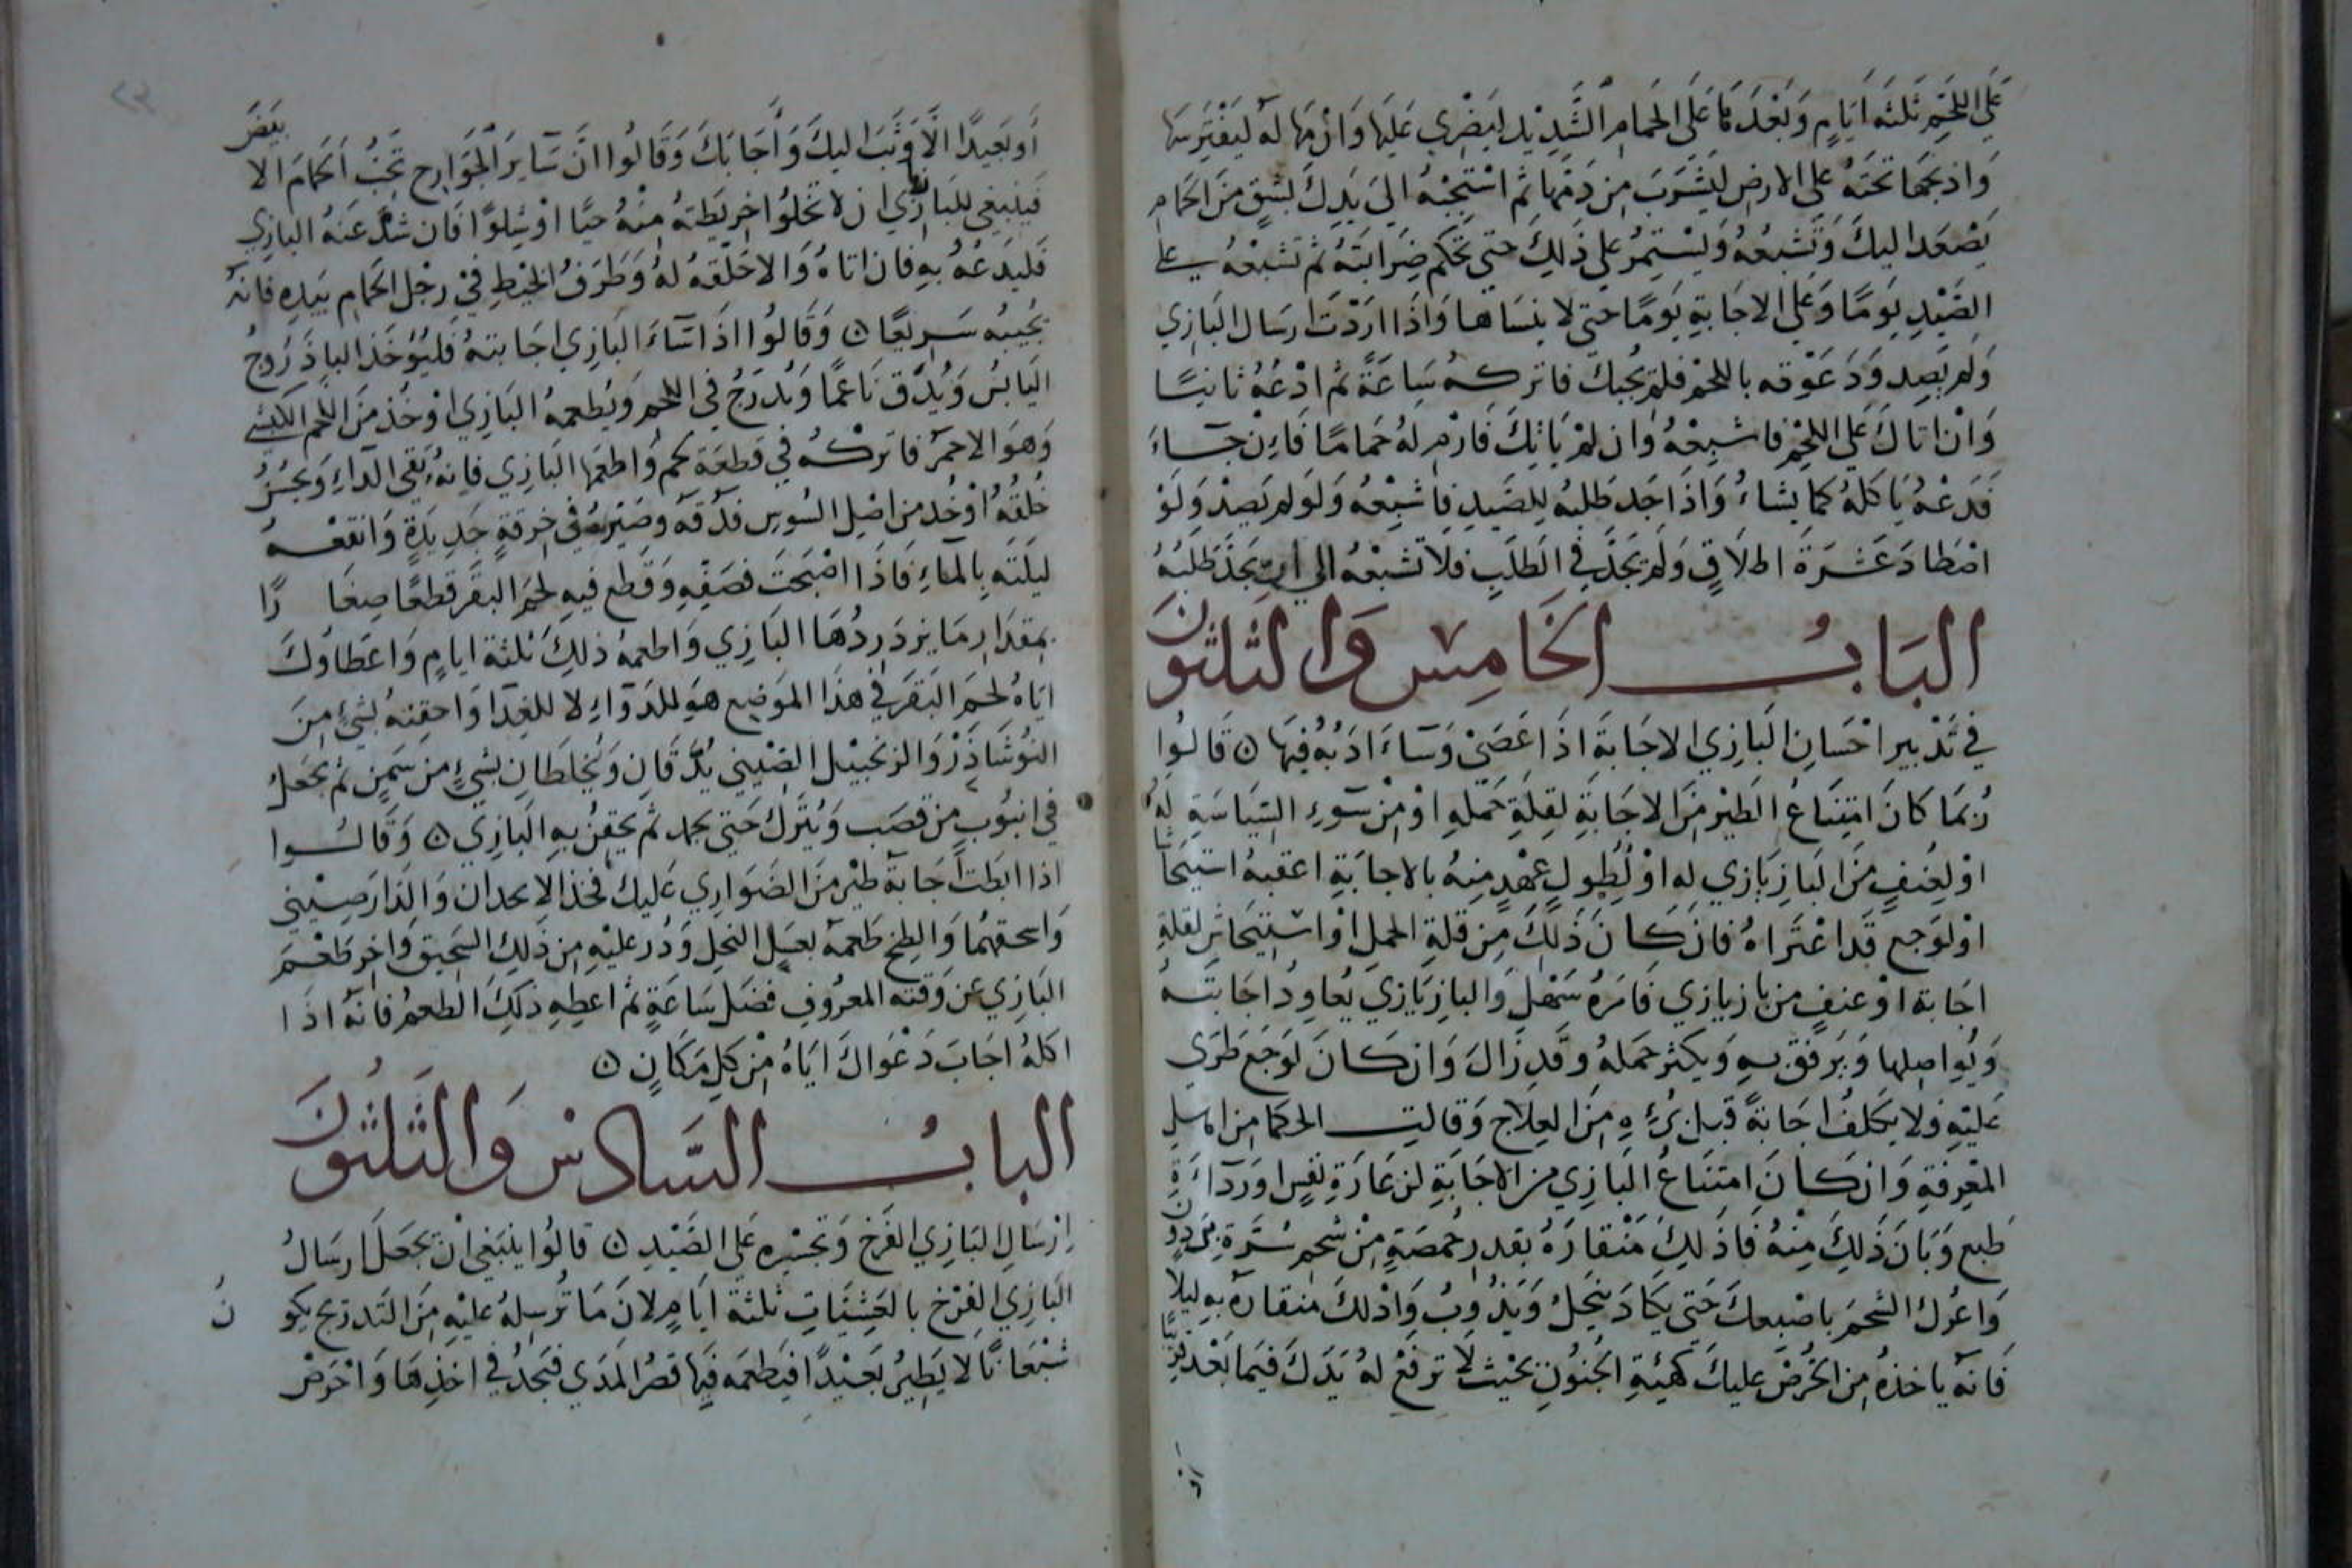 على اللحم ثلثة أيام وبعدها على الحمام الشديد ليضرى عليها وارمها له ليفترسها
واذبحها تحته على الارض ليشرب من دمها ثم استجبه الى يدك بشق من الحمام
يصعد اليك وتشبعه ويستمر على ذلك حتى تحكم ضرايته ثم تشبعه على
الصيد يوما وعلى الاجابة يوما حتى لا ينساها واذا اردت ارسال البازي
ولم يصد ودعوته باللحم فلم يجبك فاتركه ساعة ثم ادعه ثانيا
وان اتاك على اللحم فاشبعه وان لم ياتك فارم له حماما فان جاء
فدعه ياكله كما يشاء واذا جد طلبه للصيد فاشبعه ولو لم يصد ولو
اصطاد عشرة اطلاق ولم يجد في الطلب فلا تشبعه الى ان يجد طلبه
الباب الخامس والثلثون
في تدبير احسان البازي الاجابة اذا عصى وساء ادبه فيها ن قالوا
ربما كان امتناع الطير من الاجابة لقلة حمله او من سوء السياسة له
او لعنف من البازيازي له او لطول عهد منه بالاجابة اعقبه استيحاشا
او لوجع قد اعتراه فان كان ذلك من قلة الحمل او استيحاش لقلة
اجابة او عنف من بازيازي فامره سهل والبازيازي يعاود اجابته
ويواصلها ويرفق به ويكثر حمله وقد زال وان كان لوجع طرى
عليه فلا يكلف اجابة قبل برءه من العلاج وقالت الحكما من اهل
المعرفة وان كان امتناع البازي من الاجابة لزعارة نفس ورداءة
طبع وبان ذلك منه فادلك منقاره بقدر حمصة من شحم سرة برذون
واعرك الشحم باصبعك حتى يكاد ينحل ويذوب وادلك منقاره به ليلا
فانه ياخذه من الحرص عليك كهيئة الجنون بحيث لا ترفع له يدك فيما بعد قريبا
او بعيدا الا وثب اليك واجابك وقالوا ان ساير الجوارح تحب الحمام الا بعض
فينبغي للبازي ان لا تخلوا خريطته منه حيا او شلوا فان شد عنه البازي
فليدعه به فان اتاه والا خلقه له وطرف الخيط في رجل الحمام بيده فانه
يجيبه سريعا ن وقالوا اذا ساء البازي اجابته فليؤخذ الباذروج
اليابس ويدق ناعما ويدرج في اللحم ويطعمه البازي او خذ من اللحم الكبشي
وهو الاحمر فاتركه في قطعة لحم واطعمها البازي فانه ينقي الداء ويحسن
خلقه او خذ من اصل السوس فدقه وصيره في خرقة جديدة وانقعه
ليلته بالماء فاذا اصبحت فصفه وقطع فيه لحم البقر قطعا صغارا
بمقدار ما يزدردها البازي واطعمه ذلك ثلثة ايام واعطاوك
اياه لحم البقر في هذا الموضع هو للدواء لا للغدا واحقنه بشئ من
النوشاذر والزنجبيل الصيني يدقان ويخلطان بشئ من سمن ثم يجعل
في انبوب من قصب ويترك حتى يجمد ثم يحقن به البازي ن وقالوا
اذا ابطت اجابة طير من الضواري عليك فخذ والدارصيني
واسحقهما والطخ طعمه بعسل النحل وذر عليه من ذلك السحيق واخر طعم
البازي عن وقته المعروف فضل ساعة ثم اعطه ذلك الطعم فانه اذا
اكله اجاب دعواك اياه من كل مكان ن
الباب السادس والثلثون
ارسال البازي الفرخ وتجسيره على الصيد ن قالوا ينبغي ان تجعل ارسال
البازي الفرخ بالعشيات ثلثة ايام لان ما ترسله عليه من التدرج يكون
شبعانا لا يطير بعيدا فيطعمه فيها قصر المدى فيجد في اخذها واحرض